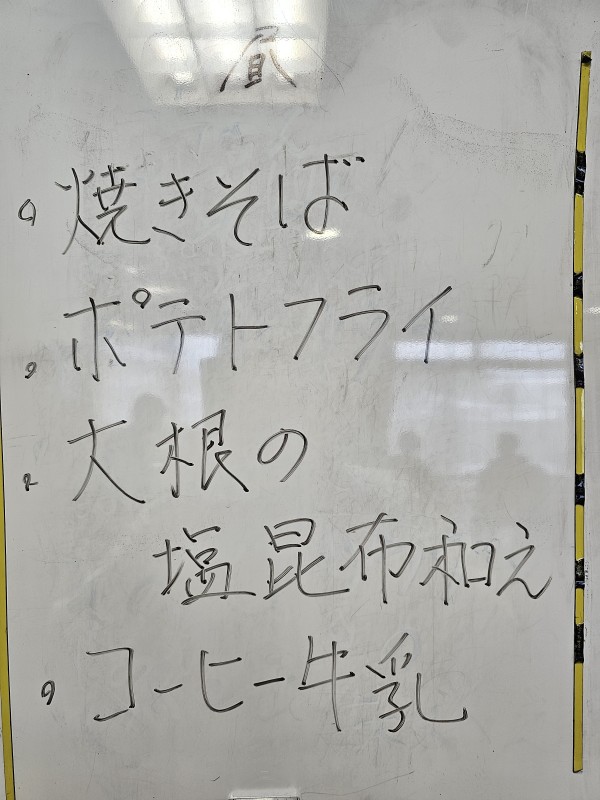 昼
・焼きそば
・ポテトフライ
・大根の
塩昆布和え
・コーヒー牛乳